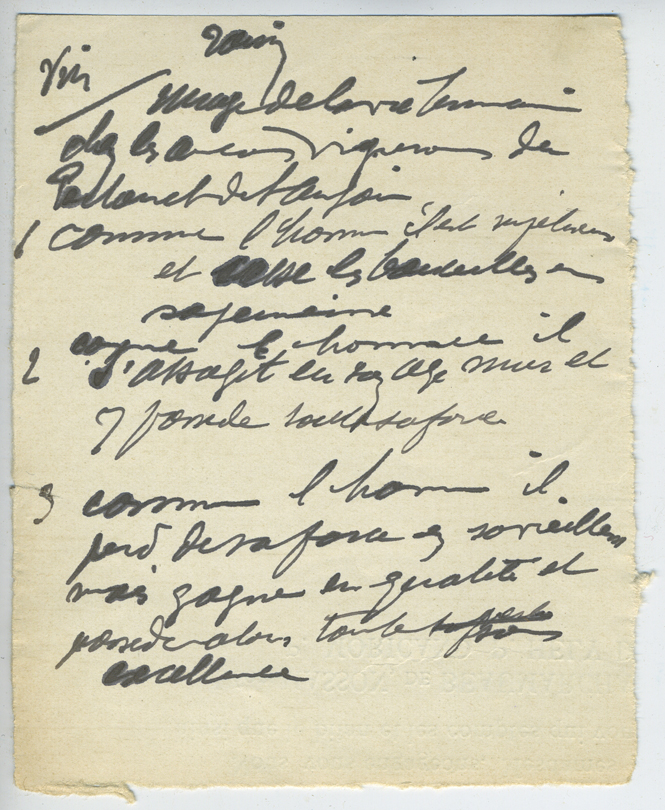 Vin
image de la vie humaine
chez les anciens vignerons de
et de l'Anjou
1 comme l'homme il est impétueux
et casse les bouteilles en
sa jeunesse
2 comme l'homme il
s'assagit en son âge mur et
y possède toute sa force
3 comme l'homme il
perd de sa force en
mais gagne en qualité et
possède alors toute
excellence